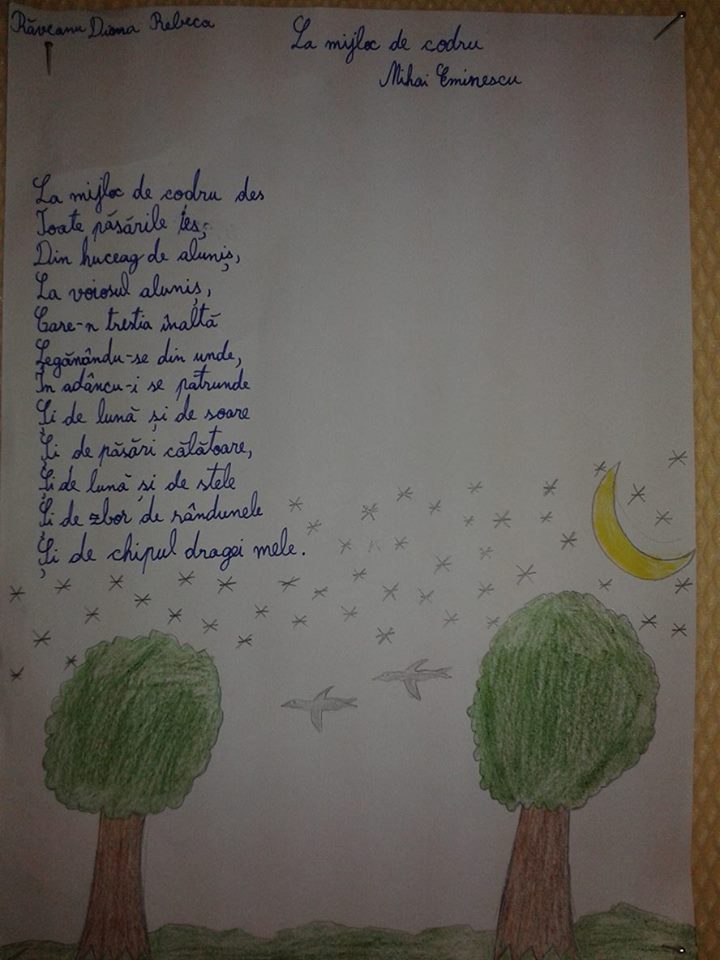 Răveanu Diana Rebeca
La mijloc de codru
Mihai Eminescu
La mijloc de codru des
Toate păsările ies,
Din huceag de aluniș,
La voiosul aluniș,
Care-n trestia înaltă
Legănându-se din unde,
În adâncu-i se patrunde
Și de lună și de soare
Și de păsări călătoare,
Și de lună si de stele
Și de zbor de rândunele
Și de chipul dragei mele.